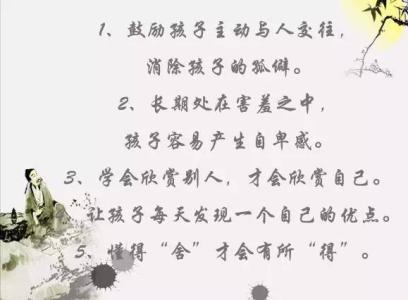 1、鼓励孩子主动与人交往，
消除孩子的孤僻。
2、长期处在害羞之中，
孩子容易产生自卑感。
3、学会欣赏别人，才会欣赏自己。
让孩子每天发现一个自己的优点。
5、懂得“舍”才会有所“得”。